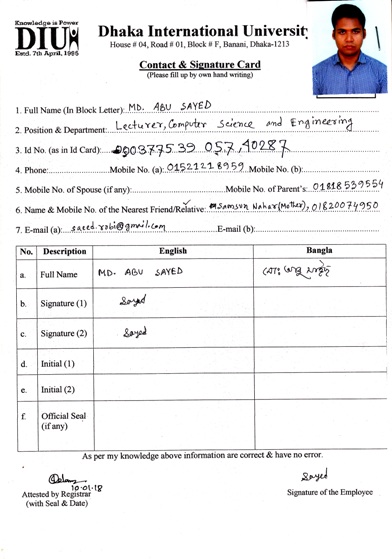 Knowledge is Power
DIU
Estd. 7th April, 1995
Dhaka International University
House # 04, Road # 01, Block # F, Banani, Dhaka-1213
Contact & Signature Card
(Please fill up by own hand writing)
1. Full Name (In Block Letter): MD. ABU SAYED
2. Position & Department: Lecturer, Computer Science and Engineering
3. Id No. (as in Id Card): 057,40287
4. Phone: Mobile No. (a): 01521218959 Mobile No. (b):
5. Mobile No. of Spouse (if any): Mobile No. of Parent's: 01818539554
6. Name & Mobile No. of the Nearest Friend/Relative: Samsun Nahar (Mother), 01820074950
7. E-mail (a): saeed.robi@gmail.com E-mail (b):
No. Description English Bangla
a. Full Name MD. ABU SAYED মোঃ আবু সাঈদ
b. Signature (1) Sayed
c. Signature (2) Sayed
d. Initial (1)
e. Initial (2)
f. Official Seal (if any)
As per my knowledge above information are correct & have no error.
10.01.18 Sayed
Attested by Registrar Signature of the Employee
(with Seal & Date)